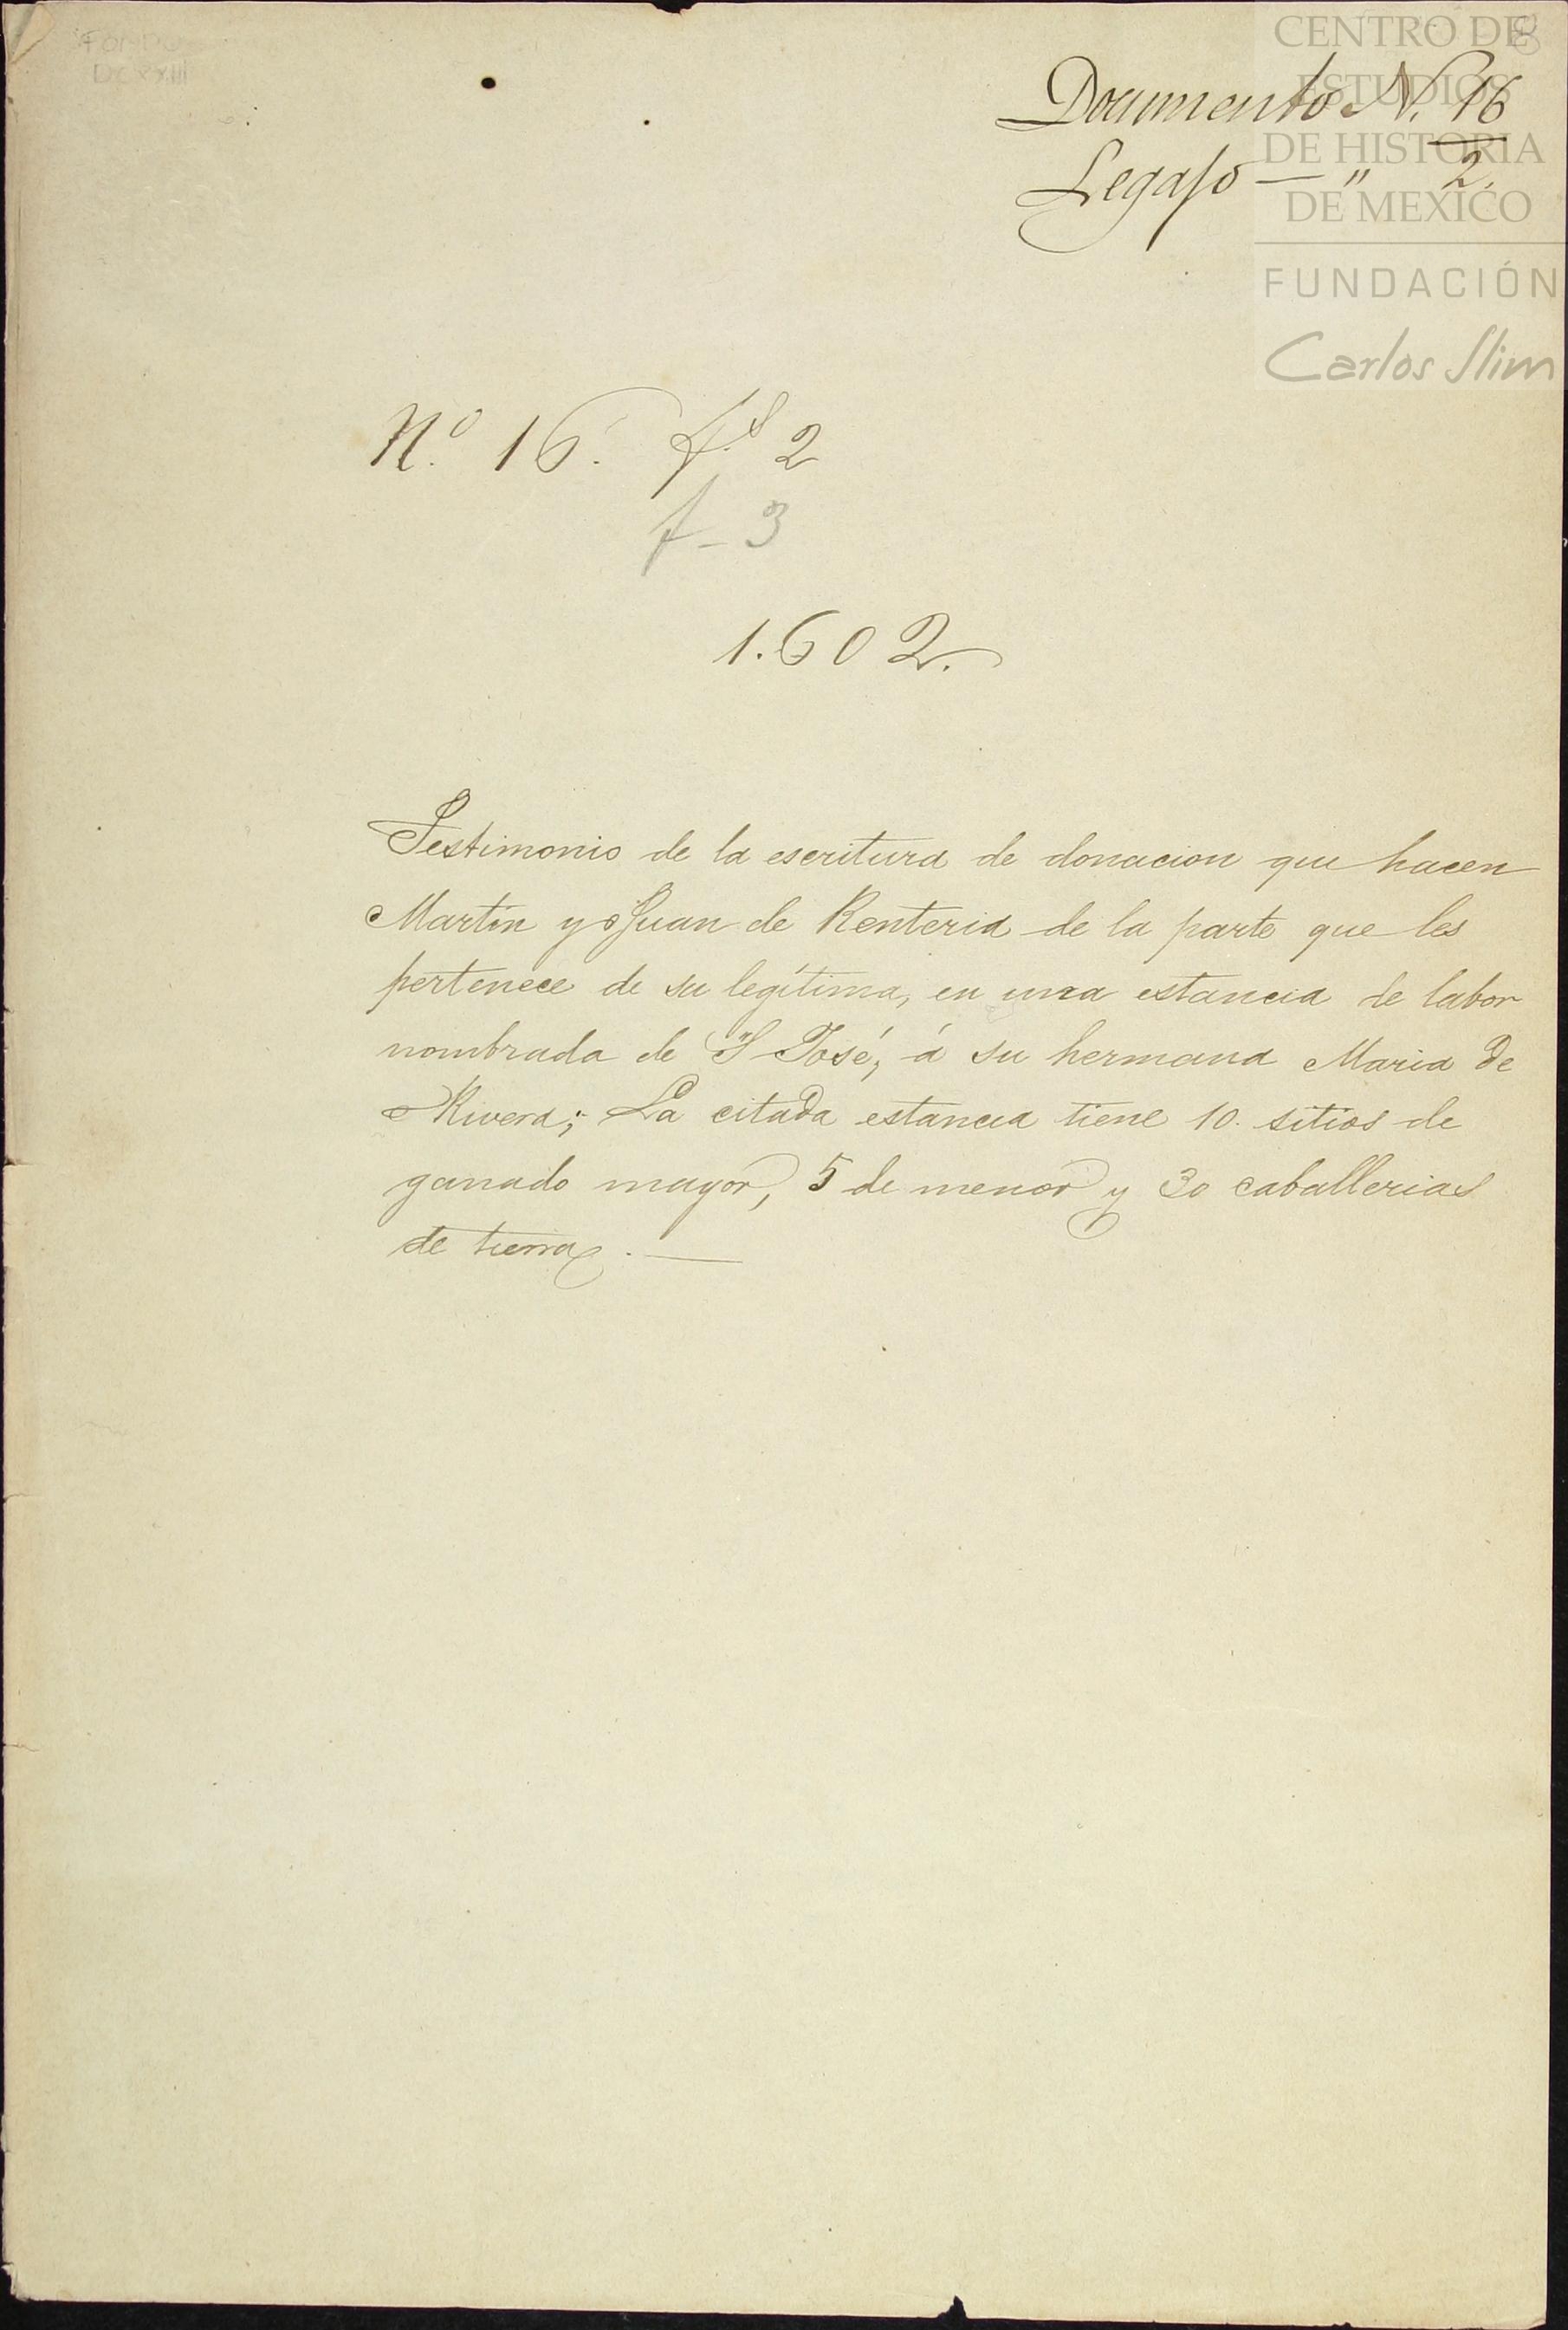 FONDO
DCXXIII
CENTRO DE
ESTUDIOS
DE HISTORIA
DE MEXICO
FUNDACIÓN
Carlos Slim
8
Documento N. 16
Legajo — " 2.
N.º 16. f.s 2
f- 3
1.602.
Testimonio de la escritura de donacion que hacen
Martin y Juan de Renteria de la parte que les
pertenece de su legítima, en una estancia de labor
nombrada de "S José, á su hermana Maria de
Rivera; La citada estancia tiene 10. sitios de
ganado mayor, 5 de menor y 30 caballerias
de tierra. —